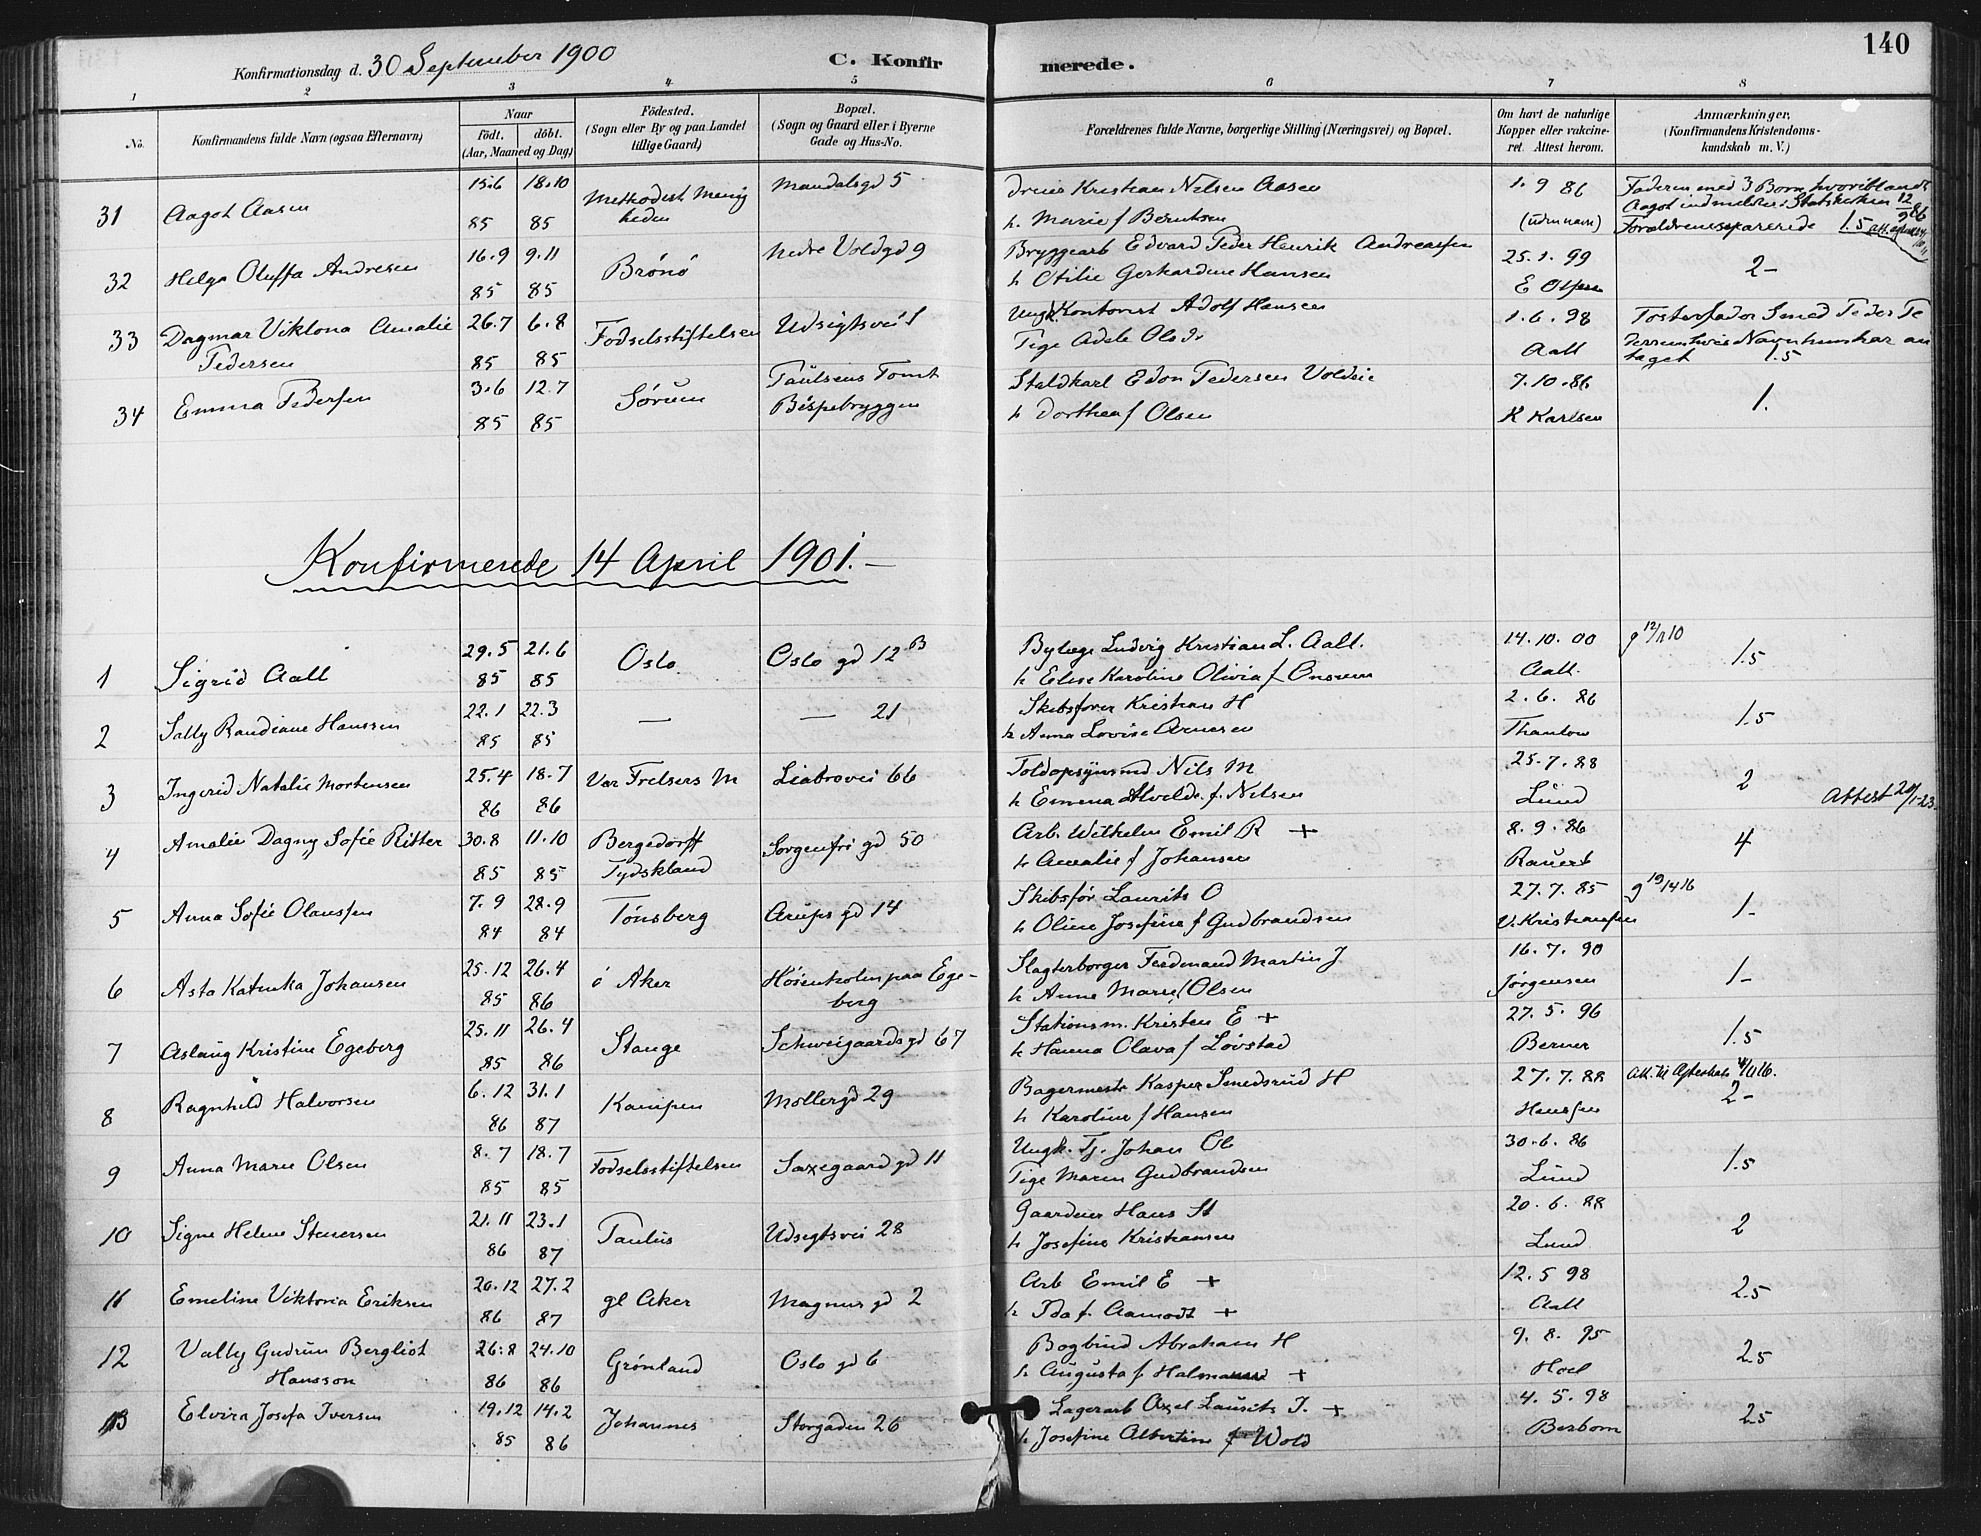 140
Konfirmationsdag d. 30 September 1900 C. Konfirmerede.
1 2 3 4 5 6 7 8
No. Konfirmandens fulde Navn (ogsaa Efternavn) Naar födt. döbt. (Aar, Maaned og Dag) Födested. (Sogn eller By og paa Landet tillige Gaard) Bopæl. (Sogn og Gaard eller i Byerne Gade og Hus-No. Forældrenes fulde Navne, borgerlige Stilling (Næringsvei) og Bopæl. Om havt de naturlige Kopper eller vakcineret. Attest herom. Anmærkninger. (Konfirmandens Kristendomskundskab m. V.)
31 Aagot Aasen 15.6 85 18.10 85 Methodist Menigheden Mandalsgd 5 Kristian Nilsen Aasen 1.9 86
h. Marie f Berntsen (uden navn) Faderen med 3 Born hvoriblandt Aagot indmeldes i Statskirken 12/9 86 Forældrene separerede 1.5
32 Helga Oluffa Andresen 16.9 85 9.11 85 Brönö Nedre Voldgd 9 Bryggearb Edvard Peder Henrik Andreassen 25.1.99 2-
h Otilie Gerhardine Hansen E Olsen
33 Dagmar Viktona Amalie 26.7 85 6.8 85 Fodselsstiftelsen Udsigtsvei 1 Ungk. Kontorist Adolf Hansen 1.6.98 Fosterfader Smed Peder Pe
Pedersen Pige Adele Olsdr Aall dersens hvis Navn hun har an
taget 1.5
34 Emma Pedersen 3.6 85 12.7 85 Sørum Paulsens Tomt Staldkarl Edon Pedersen Voldsie 7.10.86 1.
Bispebryggen h Dorthea f Olsen K Karlsen
Konfirmerede 14 April 1901.-
1 Sigrid Aall 29.5 85 21.6 85 Oslo Oslo gd 12 B Bylæge Ludvig Kristian L. Aall. 14.10.00 g 12/11 10 1.5
h Elise Karoline Olivia f Onsum Aall.
2 Sally Randiane Hanssen 22.1 85 22.3 85 — — 21 Skibsfører Kristian H 2.6.86 1.5
h Anna Lovise Arnesen Thaulow
3 Ingerid Natalie Mortensen 25.4 86 18.7 86 Var Frelsers M Liabrovei 66 Toldopsynsmd Nils M 25.7.88 2 Attest 20/1-23.
h Emma Alvilde f. Nilsen Lund
4 Amalie Dagny Sofie Ritter 30.8 85 11.10 85 Bergedorff Tydskland Sorgenfri gd 50 Arb. Wilhelm Emil R + 8.9.86 4
h Amalie f Johansen Rauert
5 Anna Sofie Olaussen 7.9 84 28.9 84 Tønsberg Arups gd 14 Skibsför Laurits O 27.7.85 g 19/14 16 1-
h Oline Josefine f Gudbrandsen V. Kristiansen
6 Asta Katinka Johansen 25.12 85 26.4 86 ö Aker Høienholm paa Egeberg Slagterborger Ferdinand Martin J 16.7.90 1-
h Anne Marie f Olsen Jørgensen
7 Aslaug Kristine Egeberg 25.11 85 26.4 86 Stange Schweigaards gd 67 Stationsm. Kristen E + 27.5.96 1.5
h Hanna Olava f Lövstad Berner
8 Ragnhild Halvorsen 6.12 86 31.1 87 Kampen Møllergd 29 Bagermestr Kasper Smedsrud H 27.7.88 2-
h Karoline f Hansen Henssen
9 Anna Marie Olsen 8.7 85 18.7 85 Fodselsstiftelsen Saxegaard gd 11 Ungk. Tj. Johan Ol 30.6.86 1.5
Pige Maren Gudbrandsen Lund
10 Signe Helene Stenersen 21.11 86 23.1 87 Paulus Udsigtsvei 28 Gaardeier Hans St 20.6.88 2
h Josefine Kristiansen Lund
11 Emeline Viktoria Eriksen 20.12 86 27.2 87 gl Aker Magnus gd 2 Arb Emil E + 12.5 98 2.5
h Ida f. Aamodt + Aall
12 Valby Gudrun Bergliot 26.8 86 24.10 86 Grønland Oslo gd 6 Bogbind Abraham H 9.8.95 2.5
Hansson h. Augusta f. Halmann + Hoel
13 Elvira Josefa Iversen 19.12 85 14.2 86 Johannes Storgaden 26 Lagerarb Axel Laurits I. + 4.5.98 2.5
h Josefine Albertine f Wold Berbom